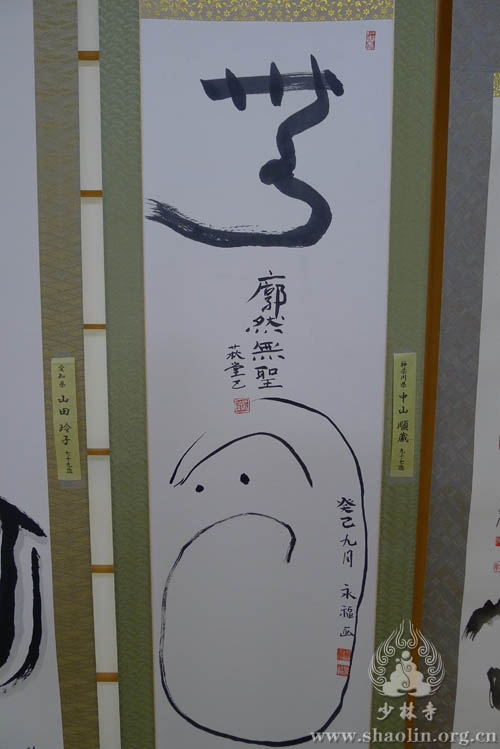 無
廓然無聖
萩堂己
癸巳九月 永福画
愛知県 山田 玲子 七十九歳
神奈川県 中山 順蔵 九十七歳
少林寺
www.shaolin.org.cn